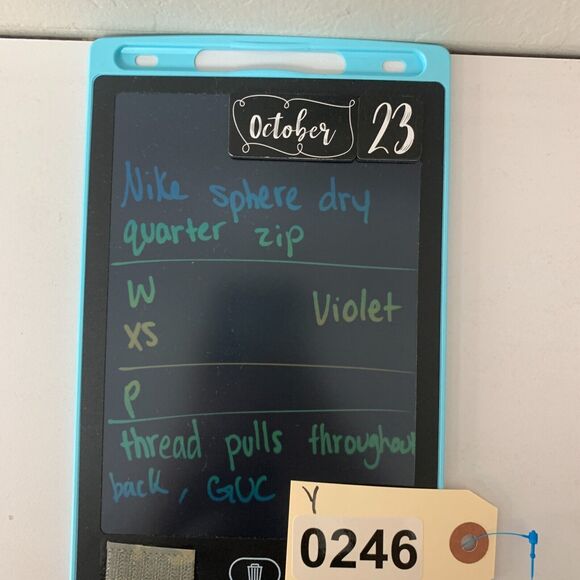 October 23
Nike sphere dry
quarter zip
W
Violet
XS
P
thread pulls throughout
back, GUC
Y
0246